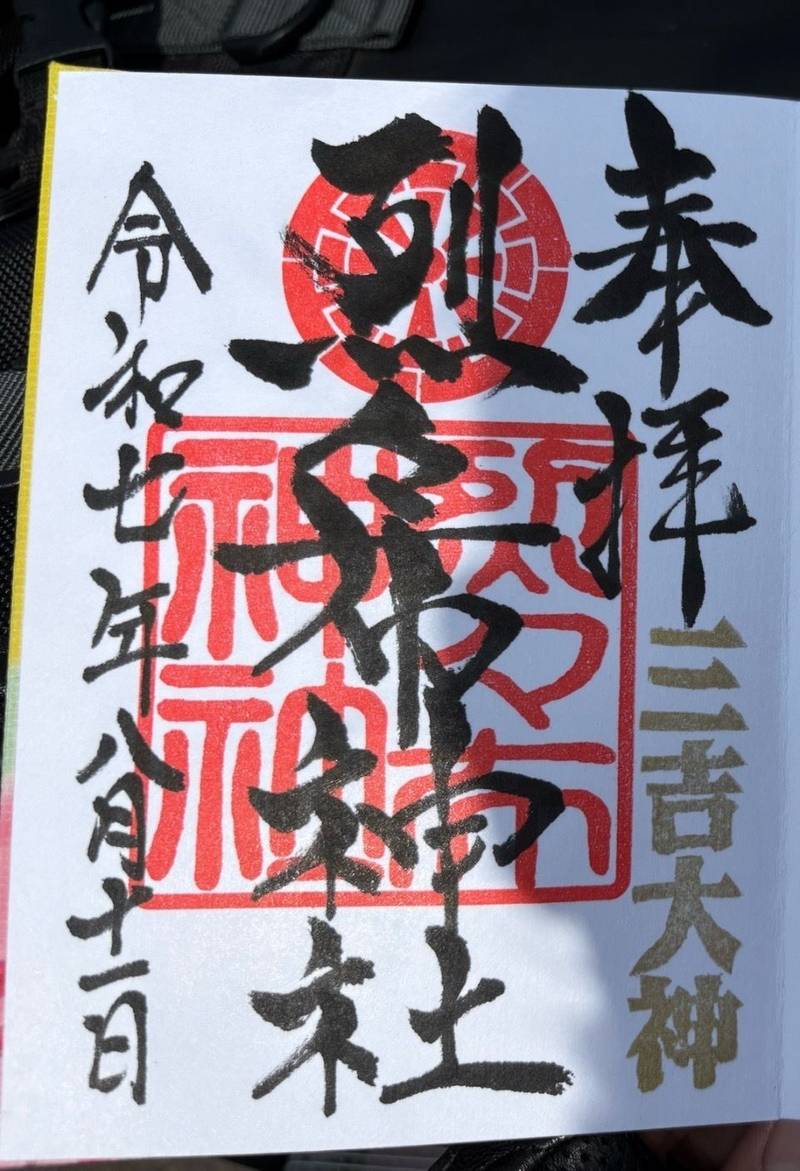 奉拝
三吉大神
烈々布神社
烈々布
神社
令和七年八月十一日